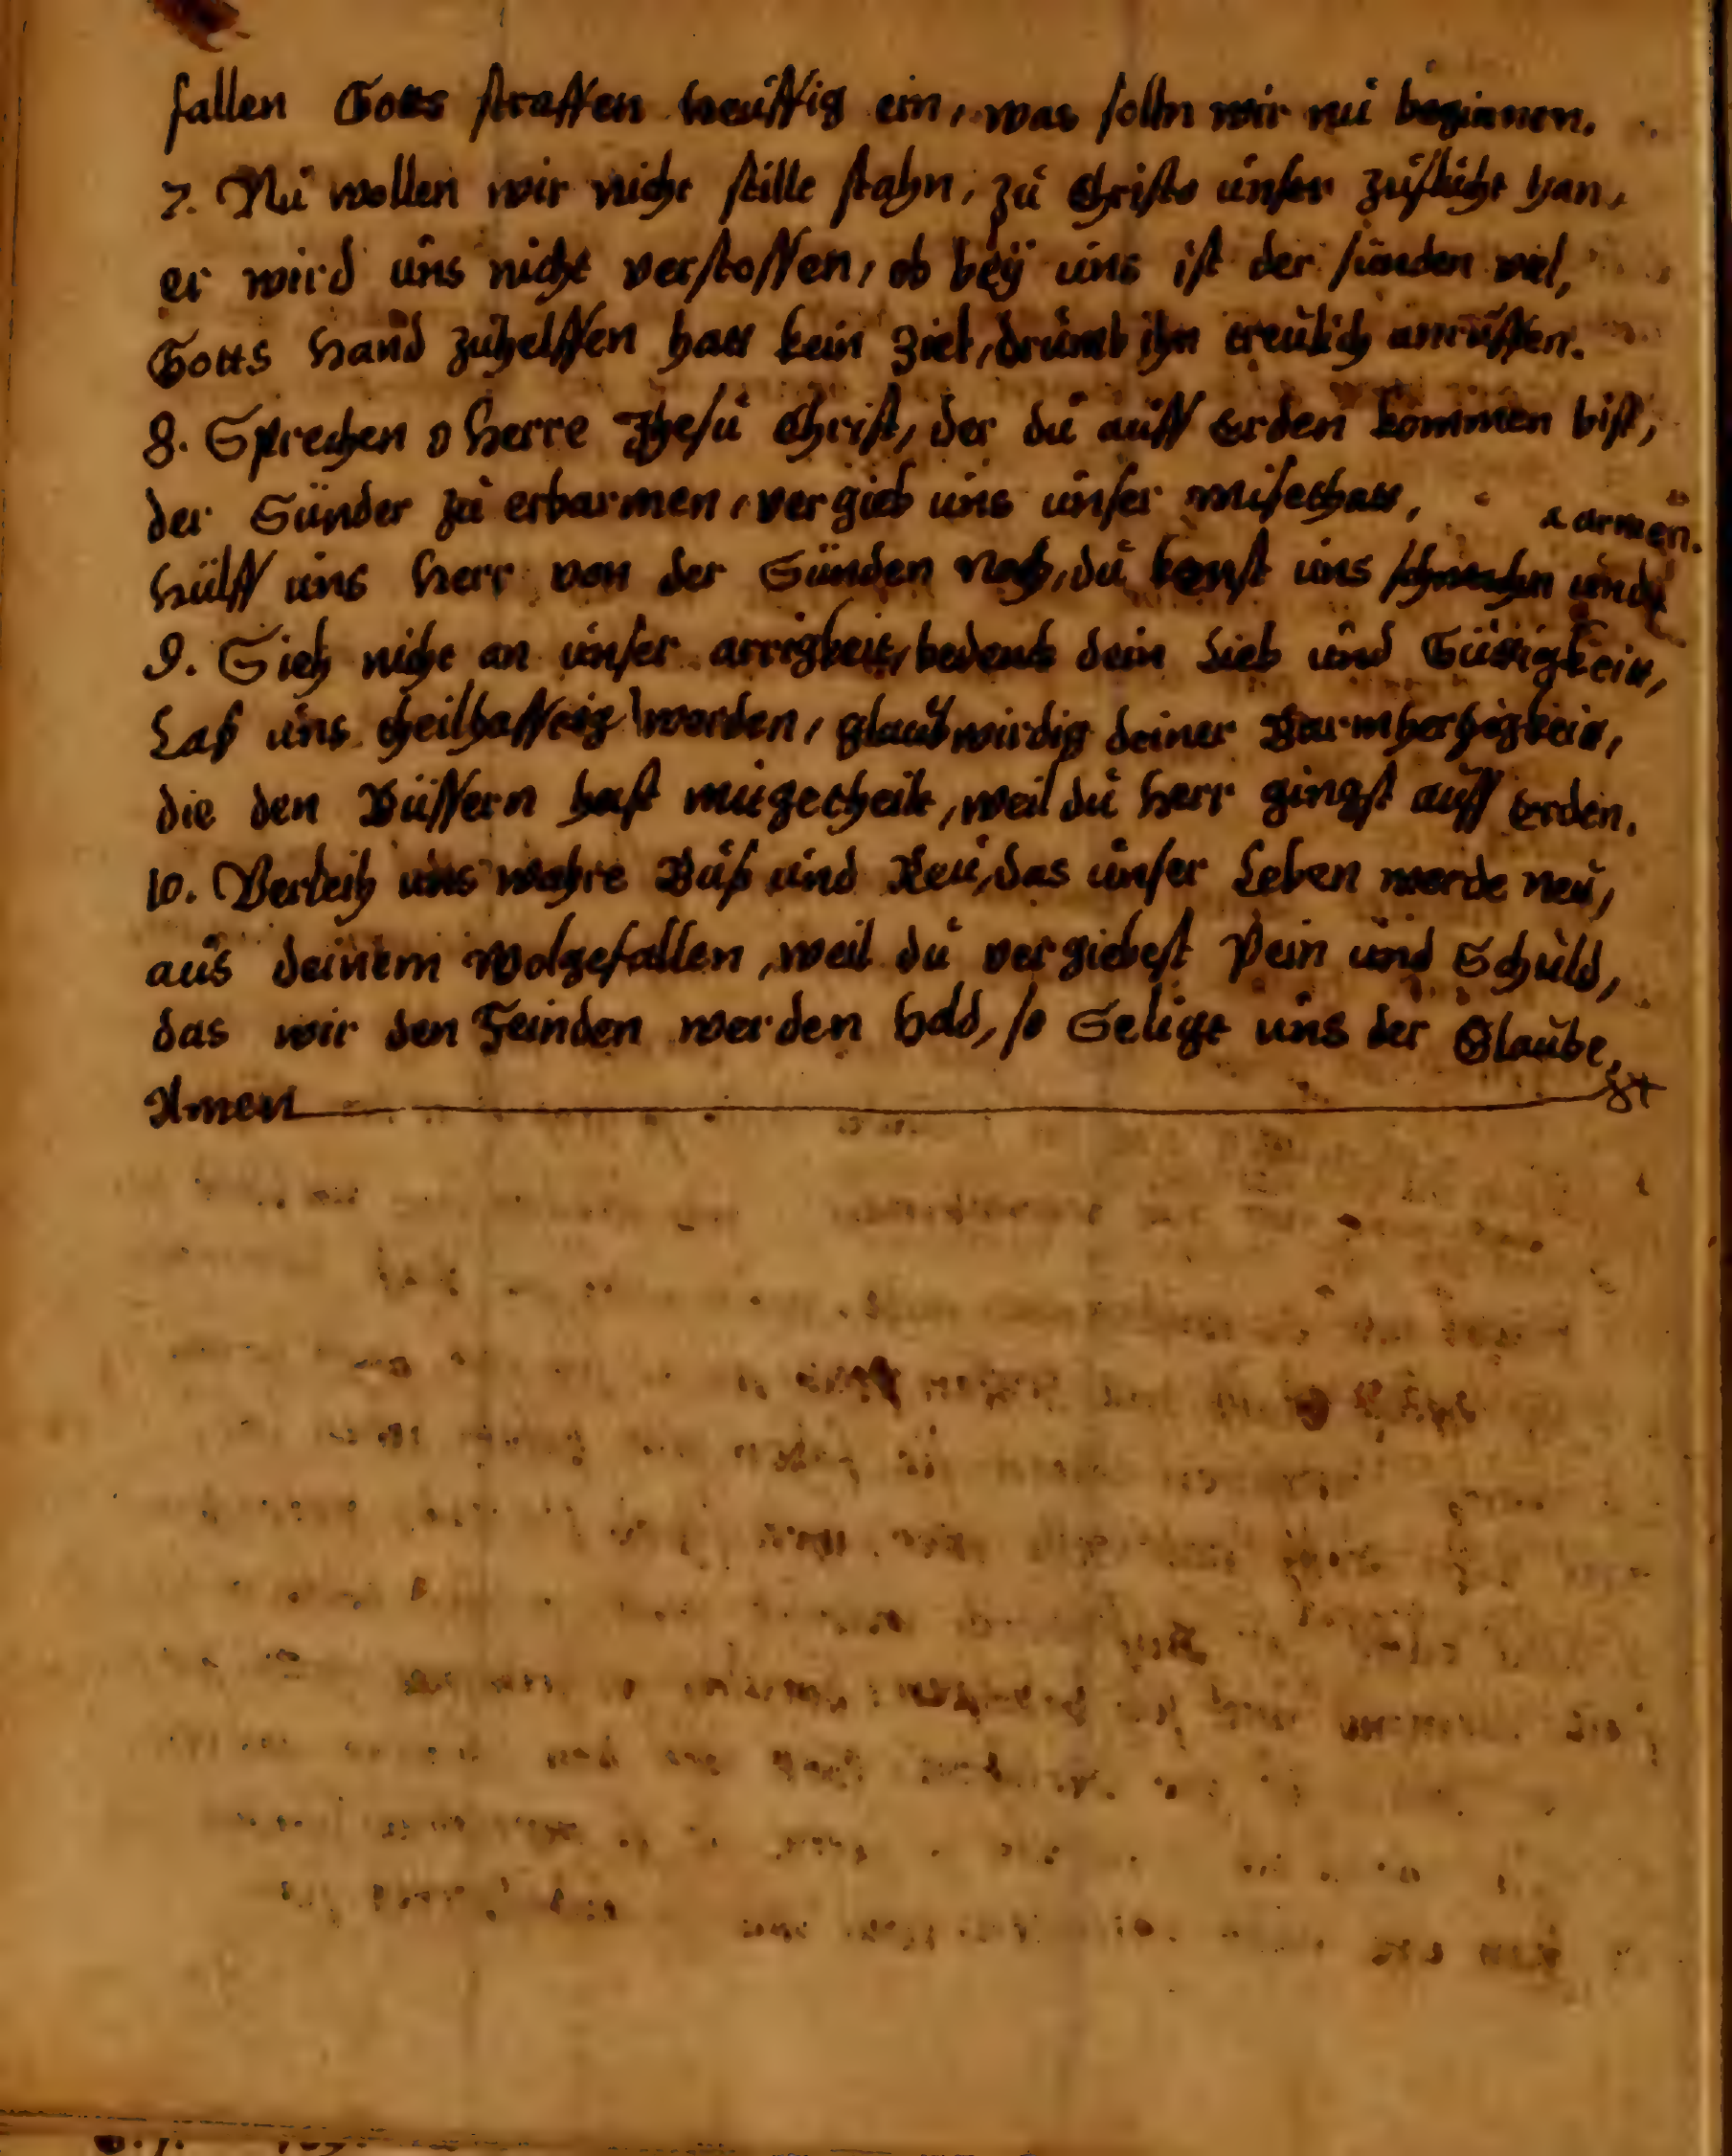 fallen Gotts straffen heuffig ein, was solln wir nu beginnen.
7. Nu wollen wir nicht stille stahn, zu Christo unser zuflucht han,
er wird uns nicht verstossen, ob bey uns ist der sünden viel,
Gotts hand zuhelffen hatt kein Ziel, drumb ihn treulich anruffen.
8. Sprechen o herre Jhesu Christ, der du auff erden kommen bist,
der Sünder zu erbarmen, vergieb uns unser missethatt,
armen.
hülff uns herr von der Sünden noth, du kanst uns schwachen und
9. Sieh nicht an unser arrigkeit, bedenck dein Lieb und Gütigkeit,
Laß uns theilhafftig werden, glaubwirdig deiner Barmhertzigkeit,
die den Büssern hast mitgetheilt, weil du herr gingst auff erden.
10. Verleih uns wahre Buß und Reu, das unser Leben werde neu,
aus deinem wolgefallen, weil du vergiebest Pein und Schuld,
das wir den Feinden werden hold, so Seligt uns der Glaube,
Amen